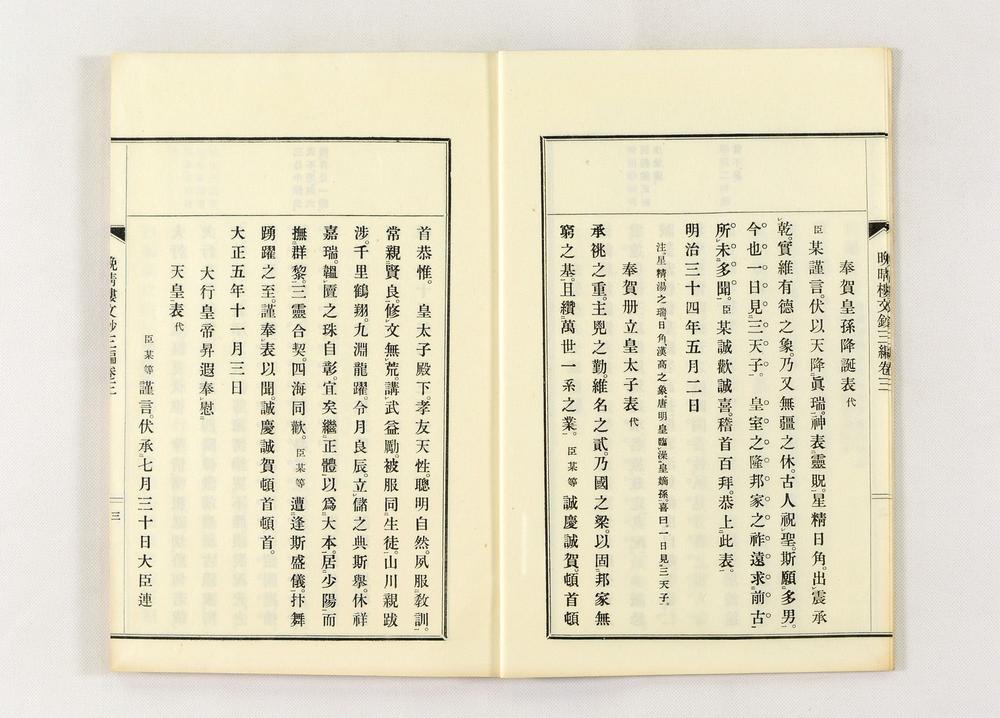 晩晴樓文鈔三編卷三
奉賀皇孫降誕表代
臣某謹言。伏以天降眞瑞。神表靈貺。星精日角。出震承
乾。實維有德之象。乃又無疆之休。古人祝聖。斯願多男。
今也一日見三天子。皇室之隆邦家之祚遠求前古
所未多聞。臣某誠歡誠喜。稽首百拜。恭上此表。
明治三十四年五月二日
注、星精湯之瑞、日角、漢高之象、唐明皇臨澡皇嫡孫。喜曰。一日見三天子。
奉賀册立皇太子表代
承祧之重。主鬯之勤。維名之貳。乃國之梁。以固邦家無
窮之基。且纘萬世一系之業。臣某等誠慶誠賀。頓首頓
首恭惟。皇太子殿下。孝友天性。聰明自然。夙服敎訓。
常親賢良。修文無荒。講武益勵。被服同生徒。山川親跋
涉。千里鶴翔。九淵龍躍。令月良辰。立儲之典斯擧。休祥
嘉瑞。韞匵之珠自彰。宜矣繼正體以爲大本。居少陽而
撫群黎。三靈合契。四海同歡。臣某等遭逢斯盛儀。抃舞
踴躍之至。謹奉表以聞。誠慶誠賀頓首頓首。
大正五年十一月三日
大行皇帝昇遐奉慰
天皇表代
臣某等謹言。伏承七月三十日大臣連
晩晴樓文鈔三編卷三
三